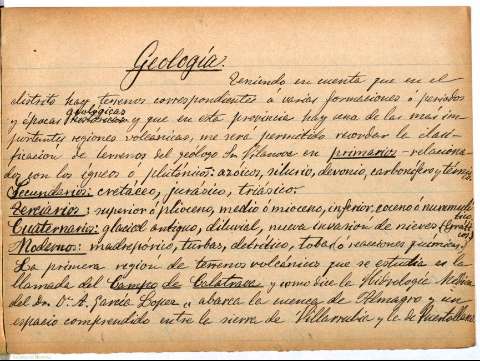 Geología.
Teniendo en cuenta que en el
distrito hay terrenos correspondientes á varias formaciones ó periodos
geológicas
y épocas y que en esta provincia hay una de las mas im-
portentes regiones volcánicas, me será permitido recordar la clasi-
ficacion de terrenos del geólogo Sr Vilanova en primarios - relaciona-
dos con los igneos ó plutónicos: azoicos, silurio, devonio, carbonífero y térmico.
Secundarios: cretáceo, jurásico, triásico.
Terciarios: superior ó plioceno, medio ó mioceno, inferior, eoceno ó nummulítico
Cuaternarios: glacial antiguo, diluvial, nueva invasión de nieves
Modernos: madrepórico, turbas, detrítico, tobas ó reacciones químicas.
La primera región de terrenos volcánicos que se estudia es la
llamada del Campo de Calatrava y como dice la Hidrología Médica
del Dn. Dr. A. García Lopez "abarca la cuenca de Almagro y un
espacio comprendido entre la sierra de Villarrubia y la de Puertollano